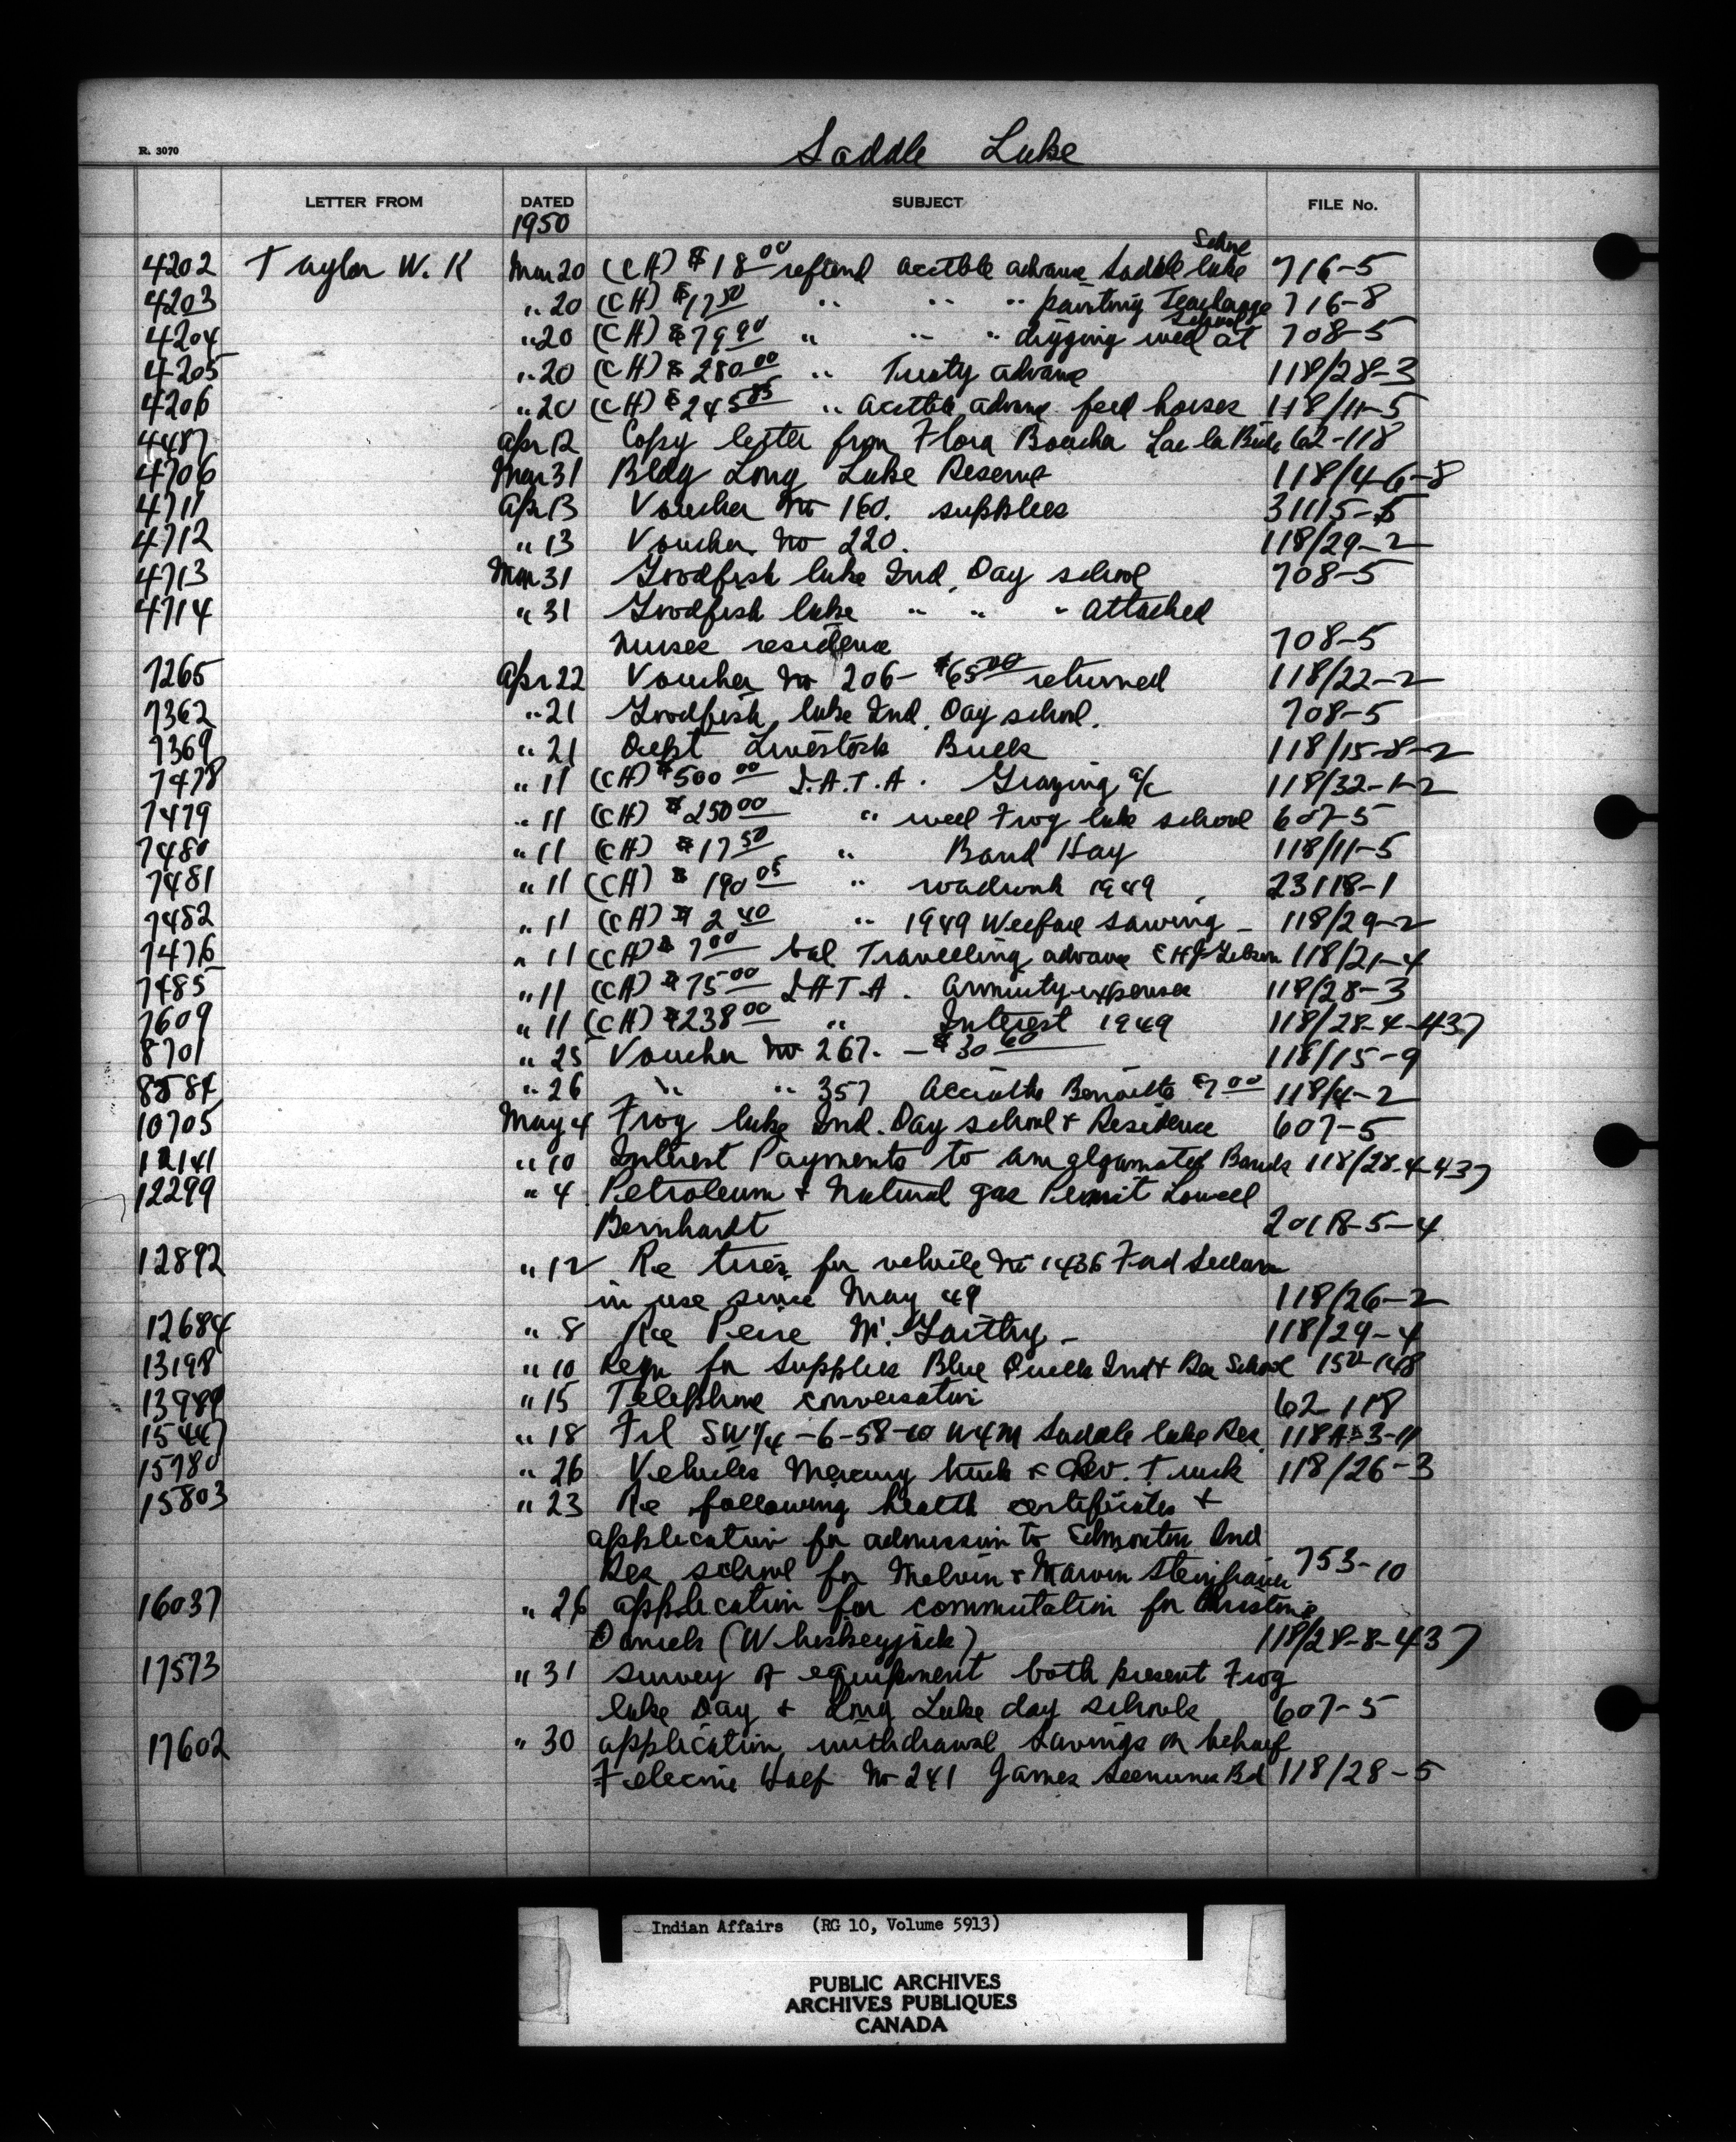 Saddle Lake
R. 3070
LETTER FROM DATED SUBJECT FILE No.
1950
School
4202 Taylor W. K Mar 20 (CH) $18 00 refund acctble advance Saddle lake 716-5
4203 " 20 (CH) $17 50 " " " painting Teacherage 716-8
School
4204 " 20 (CH) $79 90 " " " digging well at 708-5
4205 " 20 (CH) $280 00 " Treaty advance 118/28-3
4206 " 20 (CH) $245 85 " acctble advance feed horses 118/11-5
4487 Apr 12 Copy letter from Flora Boucha Lac la Biche 62-118
4706 Mar 31 Bldg Long Lake Reserve 118/4-6-8
4711 Apr 13 Voucher No 160. supplies 31115-5
4712 " 13 Voucher No 220. 118/29-2
4713 Mar 31 Goodfish lake Ind. Day school 708-5
4714 " 31 Goodfish lake " " " attached
nurses residence 708-5
7265 Apr 22 Voucher No 206- $65 00 returned 118/22-2
7362 " 21 Goodfish lake Ind. Day school. 708-5
7369 " 21 Dept Livestock Bulls 118/15-8-2
7478 " 11 (CH) $500 00 I.A.T.A. Grazing a/c 118/32-1-2
7479 " 11 (CH) $250 00 " well Frog lake school 607-5
7480 " 11 (CH) $17 50 " Band Hay 118/11-5
7481 " 11 (CH) $190 05 " roadwork 1949 23118-1
7482 " 11 (CH) $2 40 " 1949 Welfare sawing - 118/29-2
7476 " 11 (CH) $7 00 bal. Travelling advance E H J 118/21-4
7485 " 11 (CH) $75 00 IATA. annuity expenses 118/28-3
7609 " 11 (CH) $238 00 " Interest 1949 118/28-4-437
8701 " 25 Voucher No 267. - $30 60 118/15-9
8584 " 26 " " 357 $7 00 118/4-2
10705 May 4 Frog lake Ind. Day school & Residence 607-5
12141 " 10 Interest Payments to amalgamated Bands 118/28-4-437
12299 " 4 Petroleum & Natural gas Permit Lowell
Bernhardt 20118-5-4
12892 " 12 Re tires for vehicle No 1436 Ford Sedan
in use since May 49 118/26-2
12684 " 8 Re 118/29-4
13198 " 10 Reqn for supplies Blue Quills Ind & Res School 150-148
13989 " 15 Telephone conversation 62-118
15447 " 18 Frl SW 1/4 -6-58-10 W4M Saddle lake Res. 118A-3-11
15780 " 26 Vehicles Mercury truck & Chev. Truck 118/26-3
15803 " 23 Re following health certificates &
application for admission to Edmonton Ind
Res school for Melvin & Marvin Steinhauer 753-10
16037 " 26 application for commutation for Christine
Daniels (Whiskeyjack) 118/28-8-437
17573 " 31 survey of equipment both present Frog
lake Day & Long Lake day schools 607-5
17602 " 30 application withdrawal savings on behalf
Half No 241 James Seenums Bd 118/28-5
Indian Affairs (RG 10, Volume 5913)
PUBLIC ARCHIVES
ARCHIVES PUBLIQUES
CANADA